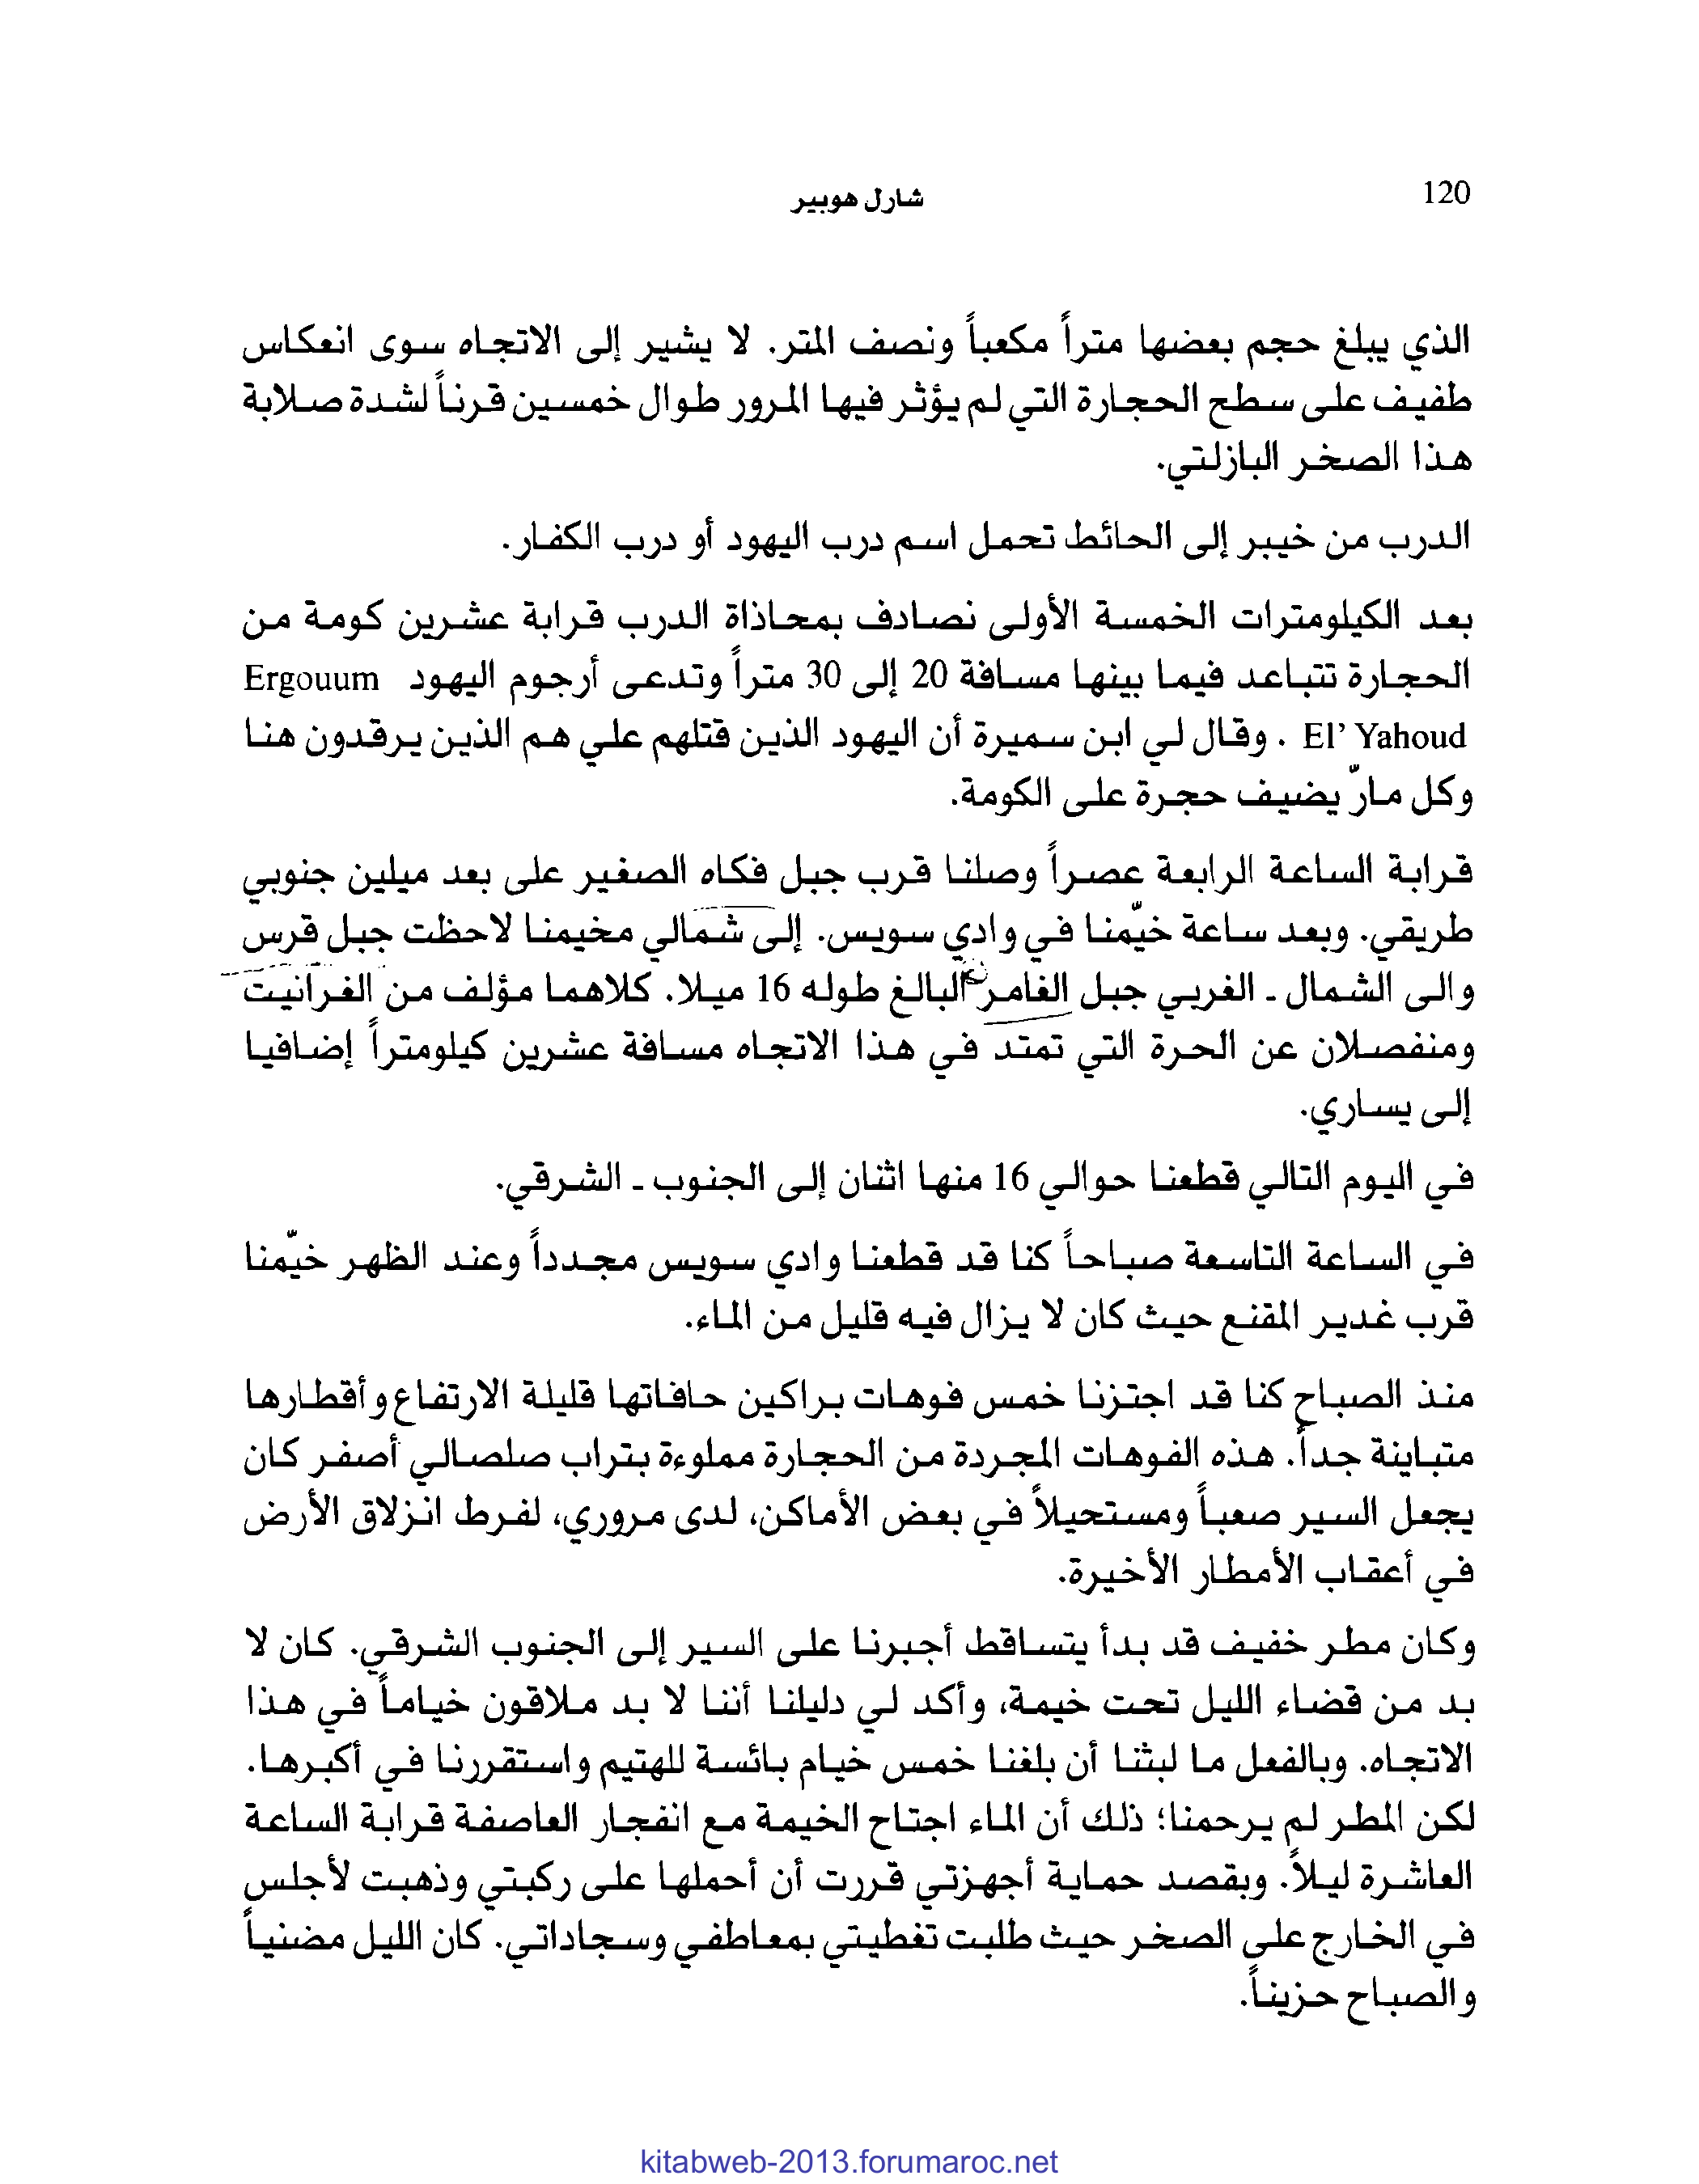 120
شارل هوبير
الذي يبلغ حجم بعضها متراً مكعباً ونصف المتر. لا يشير إلى الاتجاه سوى انعكاس
طفيف على سطح الحجارة التي لم يؤثر فيها المرور طوال خمسين قرناً لشدة صلابة
هذا الصخر البازلتي.
الدرب من خيبر إلى الحائط تحمل اسم درب اليهود أو درب الكفار.
بعد الكيلومترات الخمسة الأولى نصادف بمحاذاة الدرب قرابة عشرين كومة من
الحجارة تتباعد فيما بينها مسافة 20 إلى 30 متراً وتدعى أرجوم اليهود Ergouum
El’ Yahoud . وقال لي ابن سميرة أن اليهود الذين قتلهم علي هم الذين يرقدون هنا
وكل مارّ يضيف حجرة على الكومة.
قرابة الساعة الرابعة عصراً وصلنا قرب جبل فكاه الصغير على بعد ميلين جنوبي
طريقي. وبعد ساعة خيّمنا في وادي سويس. إلى شمالي مخيمنا لاحظت جبل قرس
والى الشمال ـ الغربي جبل الغامر البالغ طوله 16 ميلا. كلاهما مؤلف من الغرانيت
ومنفصلان عن الحرة التي تمتد في هذا الاتجاه مسافة عشرين كيلومتراً إضافيا
إلى يساري.
في اليوم التالي قطعنا حوالي 16 منها اثنان إلى الجنوب ـ الشرقي.
في الساعة التاسعة صباحاً كنا قد قطعنا وادي سويس مجدداً وعند الظهر خيّمنا
قرب غدير المقنع حيث كان لا يزال فيه قليل من الماء.
منذ الصباح كنا قد اجتزنا خمس فوهات براكين حافاتها قليلة الارتفاع وأقطارها
متباينة جداً. هذه الفوهات المجردة من الحجارة مملوءة بتراب صلصالي أصفر كان
يجعل السير صعباً ومستحيلاً في بعض الأماكن، لدى مروري، لفرط انزلاق الأرض
في أعقاب الأمطار الأخيرة.
وكان مطر خفيف قد بدأ يتساقط أجبرنا على السير إلى الجنوب الشرقي. كان لا
بد من قضاء الليل تحت خيمة، وأكد لي دليلنا أننا لا بد ملاقون خياماً في هذا
الاتجاه. وبالفعل ما لبثنا أن بلغنا خمس خيام بائسة للهتيم واستقررنا في أكبرها.
لكن المطر لم يرحمنا؛ ذلك أن الماء اجتاح الخيمة مع انفجار العاصفة قرابة الساعة
العاشرة ليلاً. وبقصد حماية أجهزتي قررت أن أحملها على ركبتي وذهبت لأجلس
في الخارج على الصخر حيث طلبت تغطيتي بمعاطفي وسجاداتي. كان الليل مضنياً
والصباح حزيناً.
kitabweb-2013.forumaroc.net